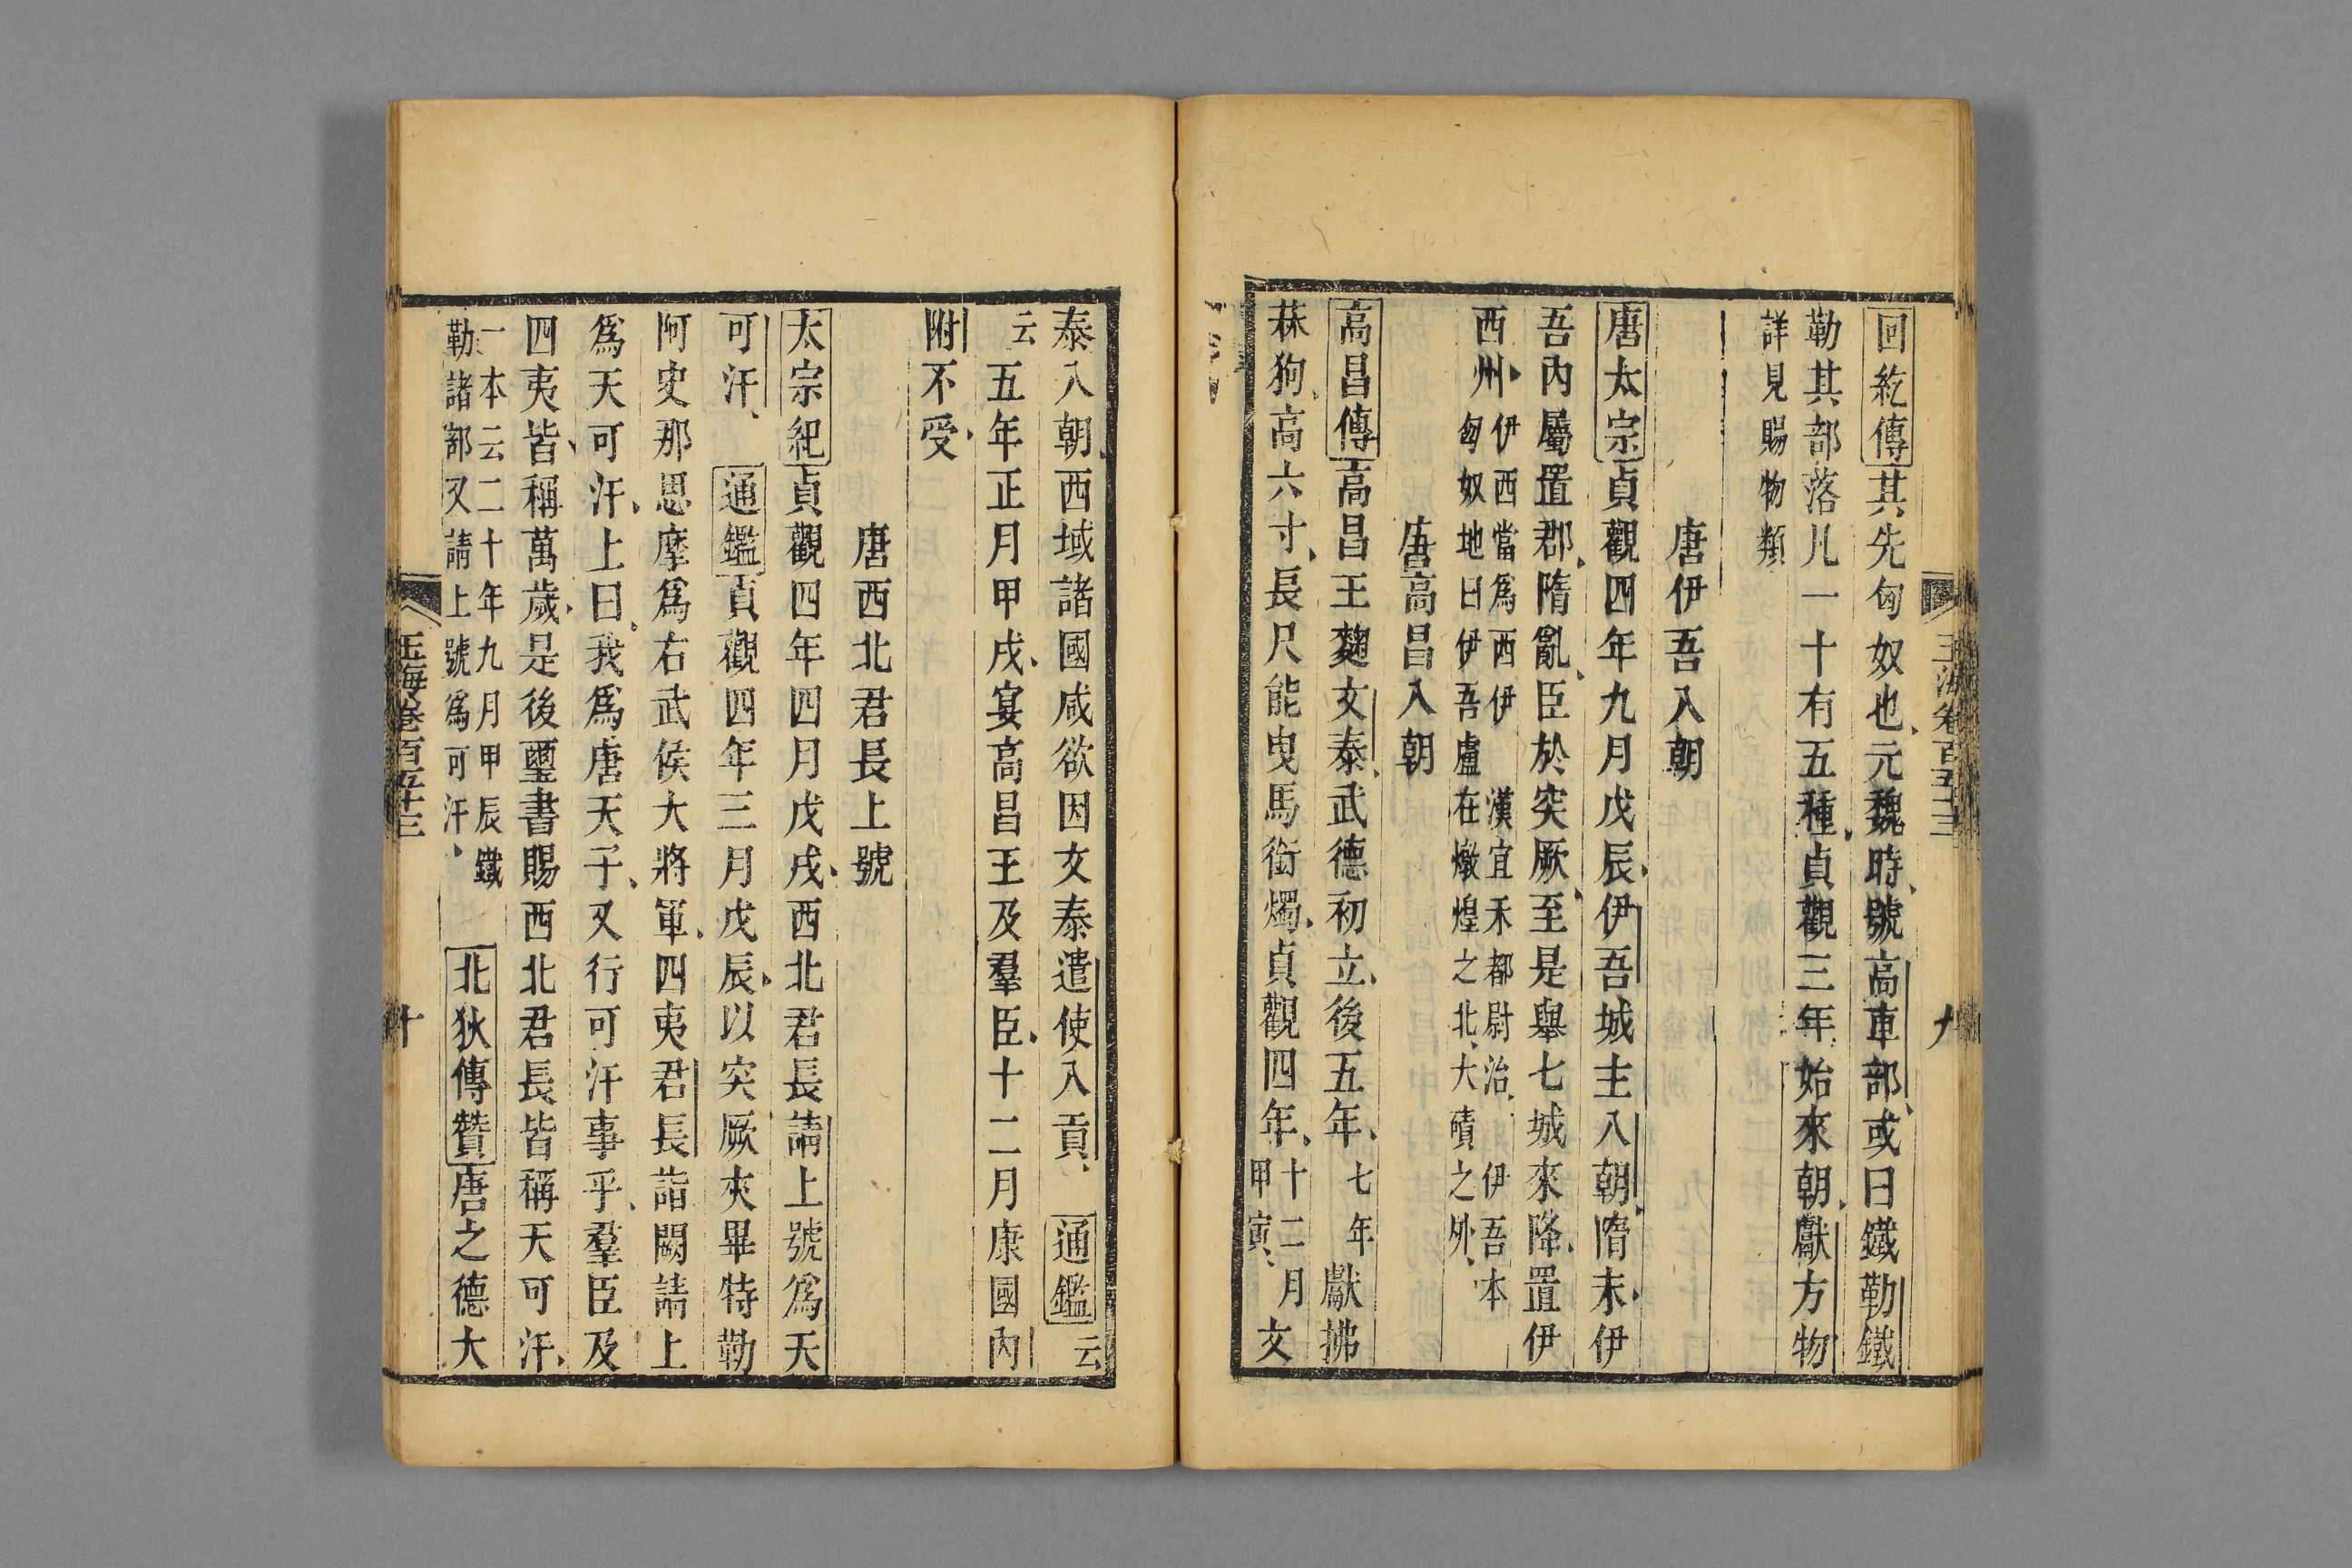 回紇傳其先匈奴也元魏時號高車部或曰鐵勒鐵
勒其部落凡一十有五種貞觀三年始來朝獻方物
詳見賜物類
唐伊吾入朝
唐太宗貞觀四年九月戊辰伊吾城主入朝隋末伊
吾內屬置郡隋亂臣於突厥至是舉七城來降置伊
西州
伊西當爲西伊 漢宜禾都尉治 伊吾本
匈奴地曰伊吾盧在燉煌之北大磧之外
唐高昌入朝
高昌傳高昌王麴文泰武德初立後五年
七年
獻拂
菻狗高六寸長尺能曳馬銜燭貞觀四年
十二月
甲寅
文
玉海卷百五十三
九
泰入朝西域諸國咸欲因文泰遣使入貢 通鑑
云
云
五年正月甲戌宴高昌王及羣臣十二月康國內
附不受
唐西北君長上號
太宗紀貞觀四年四月戊戌西北君長請上號爲天
可汗 通鑑貞觀四年三月戊辰以突厥夾畢特勒
阿史那思摩爲右武候大將軍四夷君長詣闕請上
爲天可汗上曰我爲唐天子又行可汗事乎羣臣及
四夷皆稱萬歲是後璽書賜西北君長皆稱天可汗
一本云二十年九月甲辰鐵
勒諸部又請上號爲可汗
北狄傳贊唐之德大
玉海卷百五十三
十